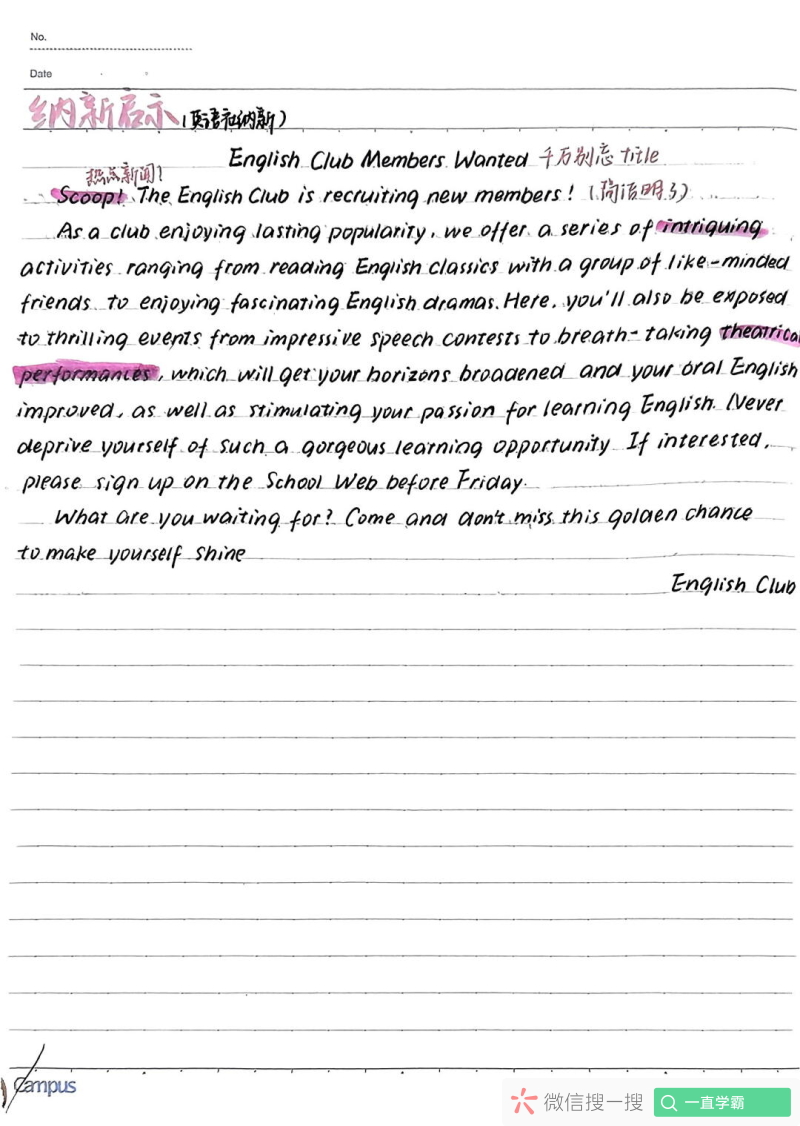 No.
Date
纳新启示(英语社纳新)
English Club Members Wanted 千万别忘 title
热点新闻!
Scoop! The English Club is recruiting new members! (简洁明了)
As a club enjoying lasting popularity, we offer a series of intriguing
activities ranging from reading English classics with a group of like-minded
friends to enjoying fascinating English dramas. Here, you'll also be exposed
to thrilling events from impressive speech contests to breath-taking theatrical
performances, which will get your horizons broadened and your oral English
improved, as well as stimulating your passion for learning English. Never
deprive yourself of such a gorgeous learning opportunity If interested,
please sign up on the School Web before Friday.
What are you waiting for? Come and don't miss this golden chance
to make yourself shine
English Club
Campus
微信搜一搜 一直学霸